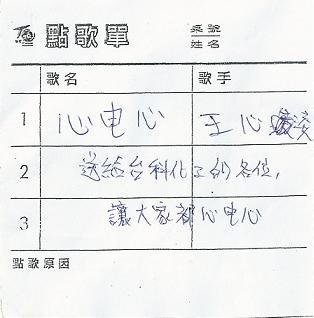 點歌單 桌號
姓名
歌名 歌手
1 心电心 王心凌
2 送給台科化工的各位,
3 讓大家都心电心
點歌原因